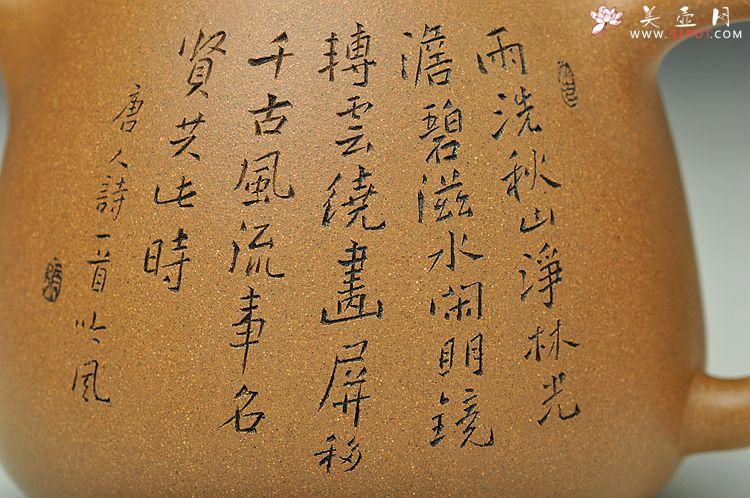 雨洗秋山淨林光
澹碧滋水閑明鏡
轉雲繞畫屏移
千古風流事名
賢共此時
唐人詩一首吟風
美壶月
WWW.51POT.COM